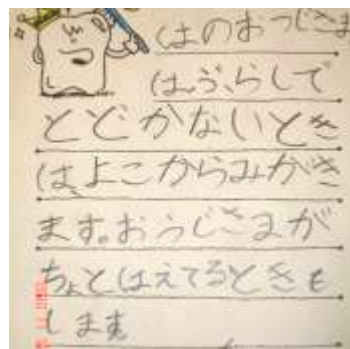 はのおうじさま
は、ぶらしで
とどかないとき
は、よこからみがき
ます。おうじさまが
ちょとはえてるときも
します